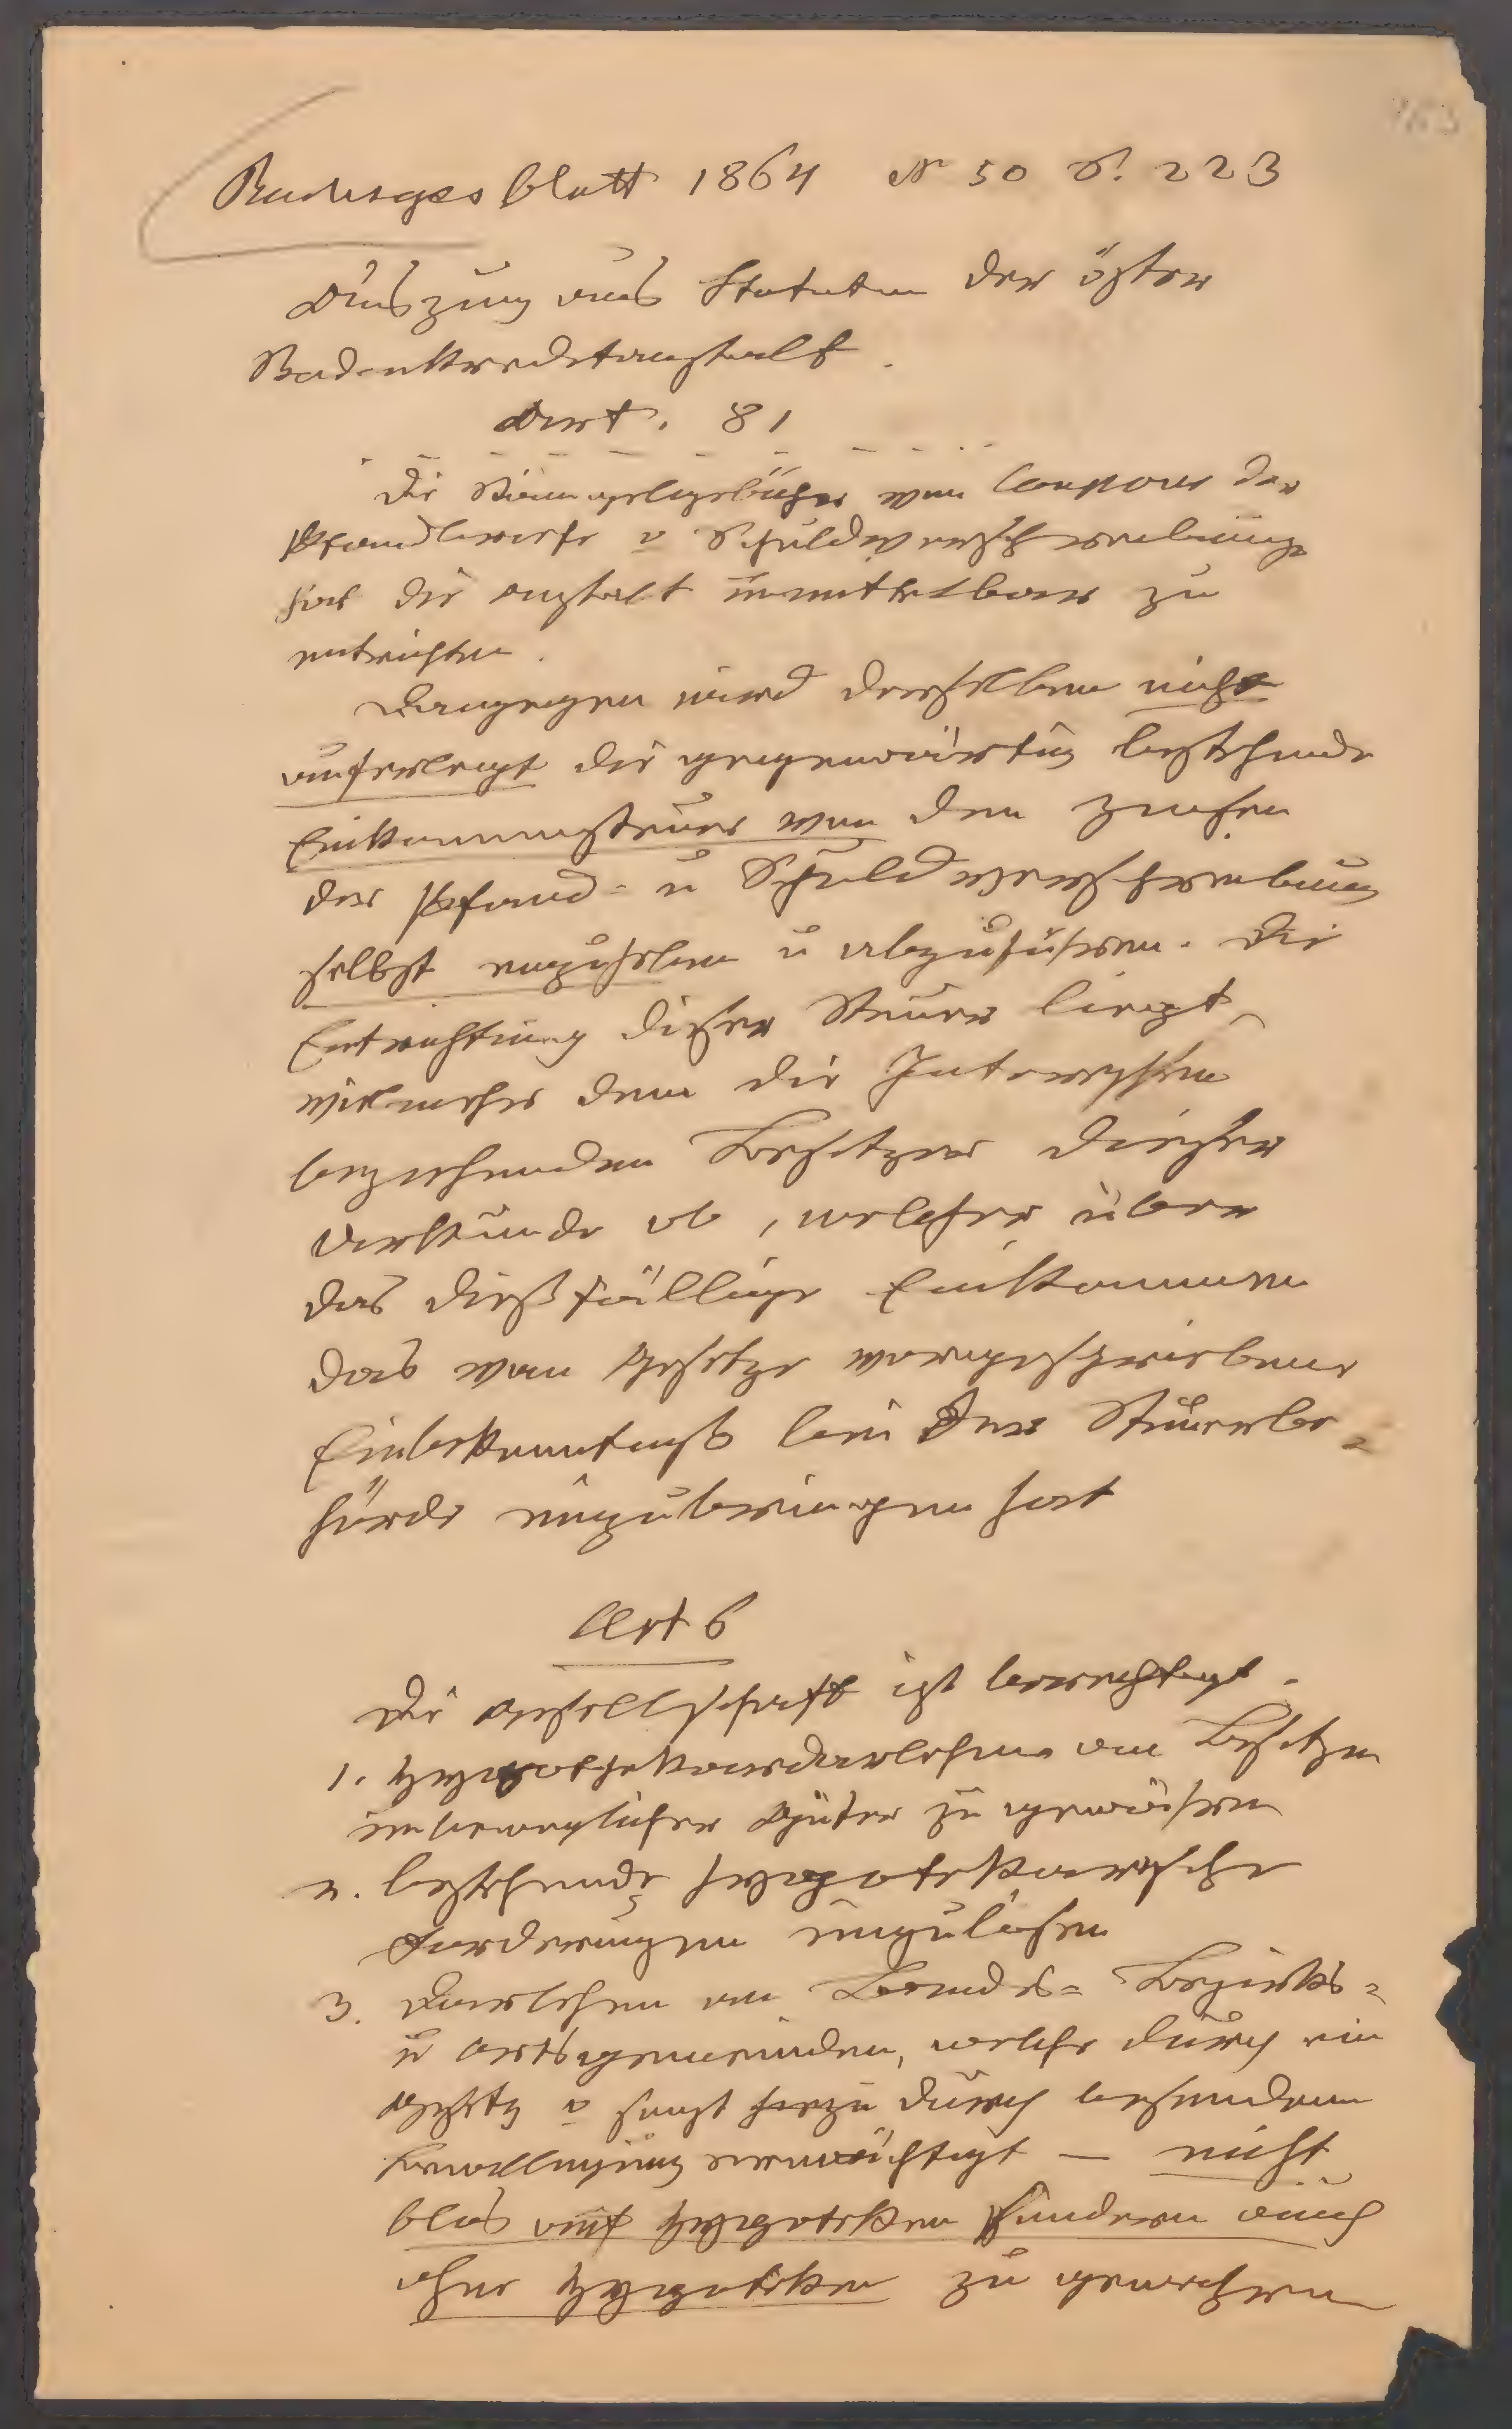 Reichsgesblatt 1864 No 50 S. 223
Auszug aus Statuten der öster
Bodenkreditanstalt.
Art. 81
Die Stempelgebühr von Coupons der
Pfandbriefe u Schuldverschreibunge
hat die Anstalt unmittelbar zu
entrichten.
Dagegen wird derselben nicht
auferlegt die gegenwärtig bestehende
Einkommensteuer von den Zinsen
der Pfand- u Schuldverschreibung
selbst einzuheben u abzuführen. Die
Entrichtung dieser Steuer liegt
vielmehr dem die Interessen
beziehenden Besitzer dieser
Urkunde ob, welcher über
das dießfällige Einkommen
das vom Gesetze vorgeschriebene
Einbekenntniß bei der Steuerbe-
hörde einzubringen hat
Art 6
Die Gesellschaft ist berechtigt.
1. Hypothekardarlehen an Besitzer
unbeweglicher Güter zu gewähren
2. bestehende hypotekarische
Forderungen einzulösen
3. Darlehen an Landes- Bezirks-
u Ortsgemeinden, welche durch ein
Gesetz o sonst hiezu durch besondere
Bewilligung ermächtigt — nicht
blos auf Hypoteken sondern auch
ohne Hypoteken zu gewehren